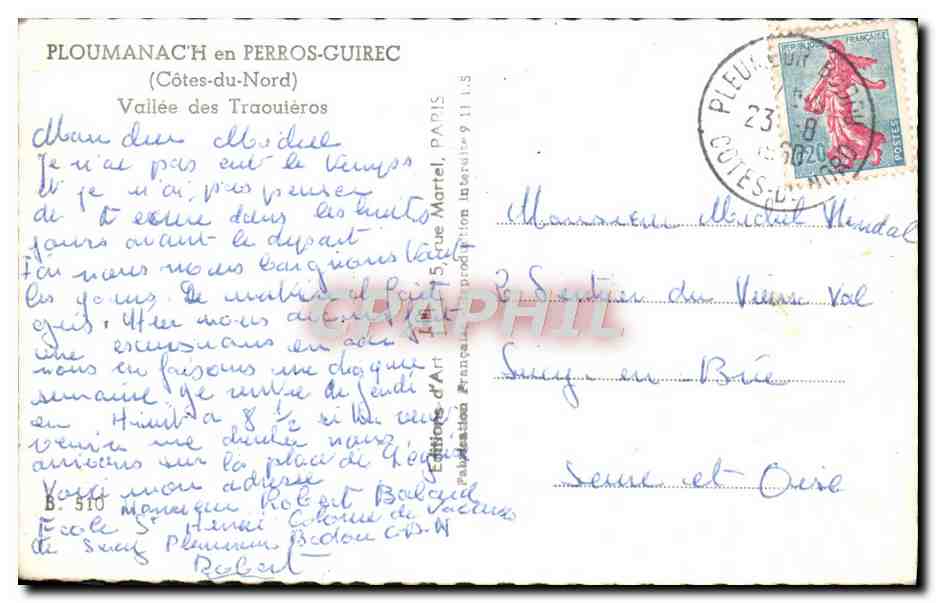 PLOUMANAC'H en PERROS-GUIREC
(Côtes-du-Nord)
Vallée des Traouiéros
Mon cher Michel
Je n'ai pas eut le temps
et je n'ai pas penser
de t'ecrire dans les huits
jours avant le depart
Ici nous nous baignons tout
les jours. Le matin il fait
gris. Hier nous avons fait
une excursions en car
nous en faisons une chaque
semaine. Je rentre le jeudi
en Huit a 8 ½ si tu veut
venir me chercher nous
arrivons sur la place de l'église
Voici mon adresse
Monsieur Robert
Ecole St Henri Colonie de Vacances
de Sucy Pleumeur Bodou C-D-N
Robert
B. 510
Editions d'Art 15, rue Martel, PARIS
Fabrication Française Reproduction interdite 9 11
CPAPHIL
PLEUMEUR BODOU
23 -8
1960
COTES-DU-NORD
REPUBLIQUE FRANÇAISE
0,20
POSTES
Monsieur Michel
2 Sentier du Vieux Val
Sucy-en-Brie
Seine et Oise